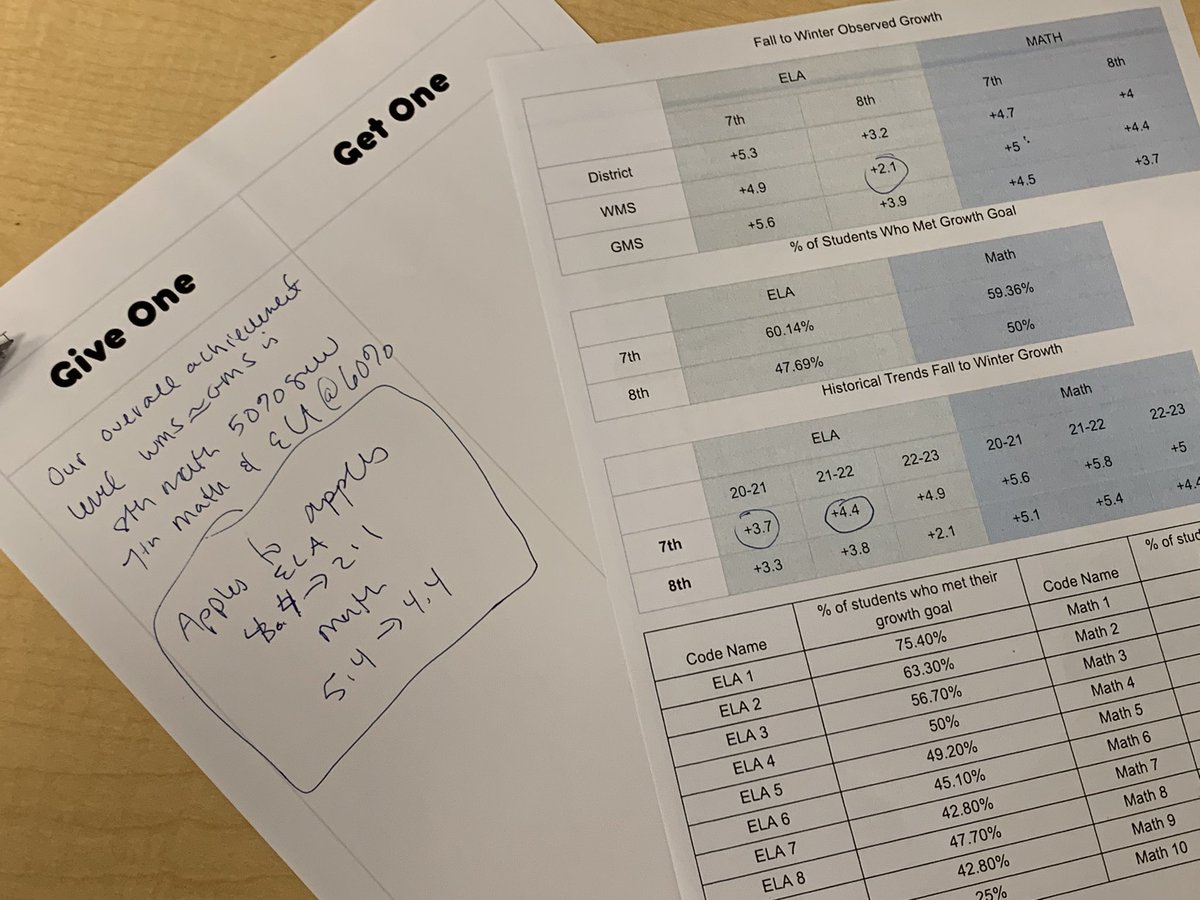 Give One
Get One
Our overall achievement
level wms ≈ gms is
8th math 50% grew
7th math & ELA @ 60%
Apples to apples
ELA
→ 2.1
math
5.4 → 4.4
Fall to Winter Observed Growth
ELA MATH
7th 8th 7th 8th
District +5.3 +3.2 +4.7 +4
WMS +4.9 +2.1 +5 +4.4
GMS +5.6 +3.9 +4.5 +3.7
% of Students Who Met Growth Goal
ELA Math
7th 60.14% 59.36%
8th 47.69% 50%
Historical Trends Fall to Winter Growth
ELA Math
20-21 21-22 22-23 20-21 21-22 22-23
7th +3.7 +4.4 +4.9 +5.6 +5.8 +5
8th +3.3 +3.8 +2.1 +5.1 +5.4 +4.4
Code Name % of students who met their growth goal Code Name % of stud
ELA 1 75.40% Math 1
ELA 2 63.30% Math 2
ELA 3 56.70% Math 3
ELA 4 50% Math 4
ELA 5 49.20% Math 5
ELA 6 45.10% Math 6
ELA 7 42.80% Math 7
ELA 8 47.70% Math 8
42.80% Math 9
25% Math 10